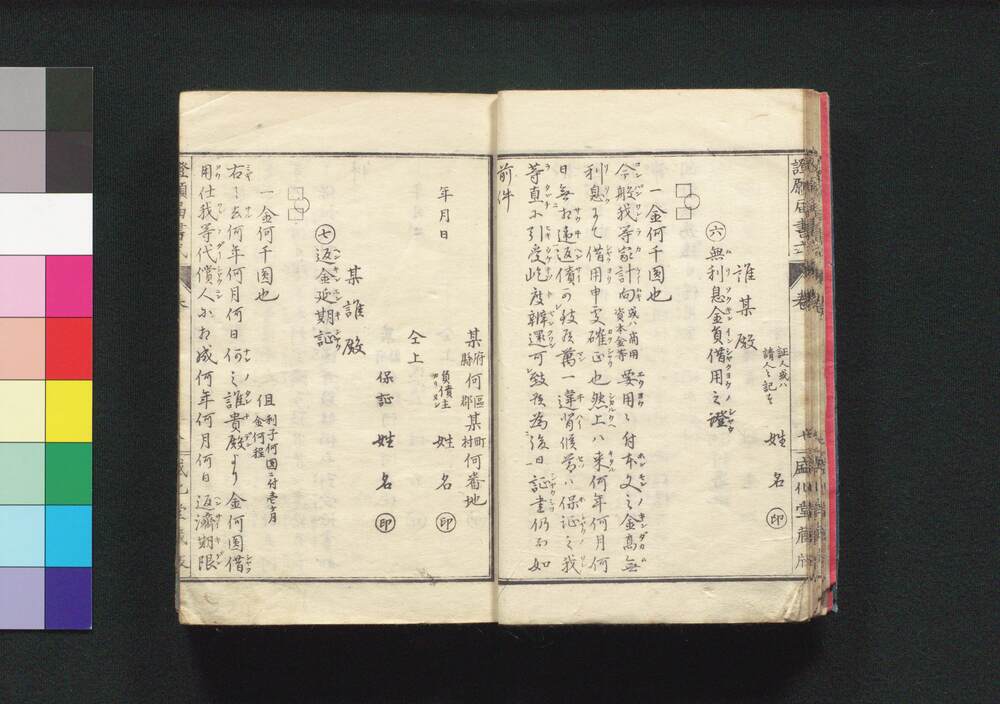 證人或ハ
請人之記を
姓名㊞
誰某殿
㊅無利息金負借用之證
一金何千圓也
今般我等家計向或ハ商用資本金等要用ニ付本文之金髙無
利息にて借用申処確正也然上ハ来何年何月何
日無相違返償可致候萬一違背候節ハ保証之我
等直に引受屹度辨還可致候為後日証書仍而如
前件
某府縣何區郡某町村何番地
年月日
負債主 姓名㊞
仝上
保証 姓名㊞
某誰殿
㊆返金延期証
一金何千圓也 但利子何圓ニ付壱ヶ月金何程
右之去何年何月何日何之誰貴殿より金何圓借
用仕我等代償人に相成何年何月何日返濟期限